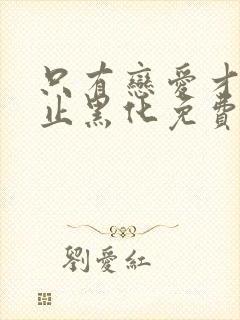 只有戀愛才
止黑化免費
劉愛紅